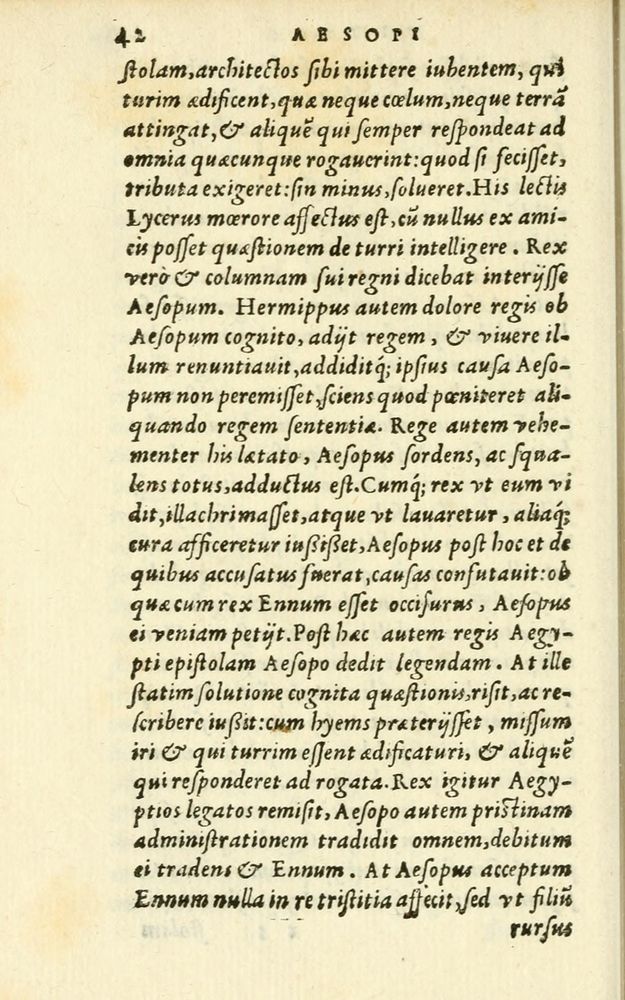 42 AESOPI
ſtolam, architectos ſibi mittere iubentem, qui
turim ædificent, quæ neque cœlum, neque terrā
attingat, & aliquē qui ſemper reſpondeat ad
omnia quæcunque rogauerint: quod ſi feciſſet,
tributa exigeret: ſin minus, ſolueret. His lectis
Lycerus mœrore affectus eſt, cū nullus ex ami-
cis poſſet quæſtionem de turri intelligere. Rex
verò & columnam ſui regni dicebat interijſſe
Aeſopum. Hermippus autem dolore regis ob
Aeſopum cognito, adijt regem, & viuere il-
lum renuntiauit, addiditq́; ipſius cauſa Aeſo-
pum non peremiſſet, ſciens quod pœniteret ali-
quando regem ſententiæ. Rege autem vehe-
menter his lætato, Aeſopus ſordens, ac ſqua-
lens totus, adductus eſt. Cumq́; rex vt eum vi
dit, illachrimaſſet, atque vt lauaretur, aliaq́;
cura afficeretur iuſſiſſet, Aeſopus poſt hoc et de
quibus accuſatus fuerat, cauſas confutauit: ob
quæ cum rex Ennum eſſet occiſurus, Aeſopus
ei veniam petijt. Poſt hæc autem regis Aegy-
pti epiſtolam Aeſopo dedit legendam. At ille
ſtatim ſolutione cognita quæſtionis, riſit, ac re-
ſcribere iuſſit: cum hyems præterijſſet, miſſum
iri & qui turrim eſſent ædificaturi, & aliquē
qui reſponderet ad rogata. Rex igitur Aegy-
ptios legatos remiſit, Aeſopo autem priſtinam
adminiſtrationem tradidit omnem, debitum
ei tradens & Ennum. At Aeſopus acceptum
Ennum nulla in re triſtitia affecit, ſed vt filiū
rurſus